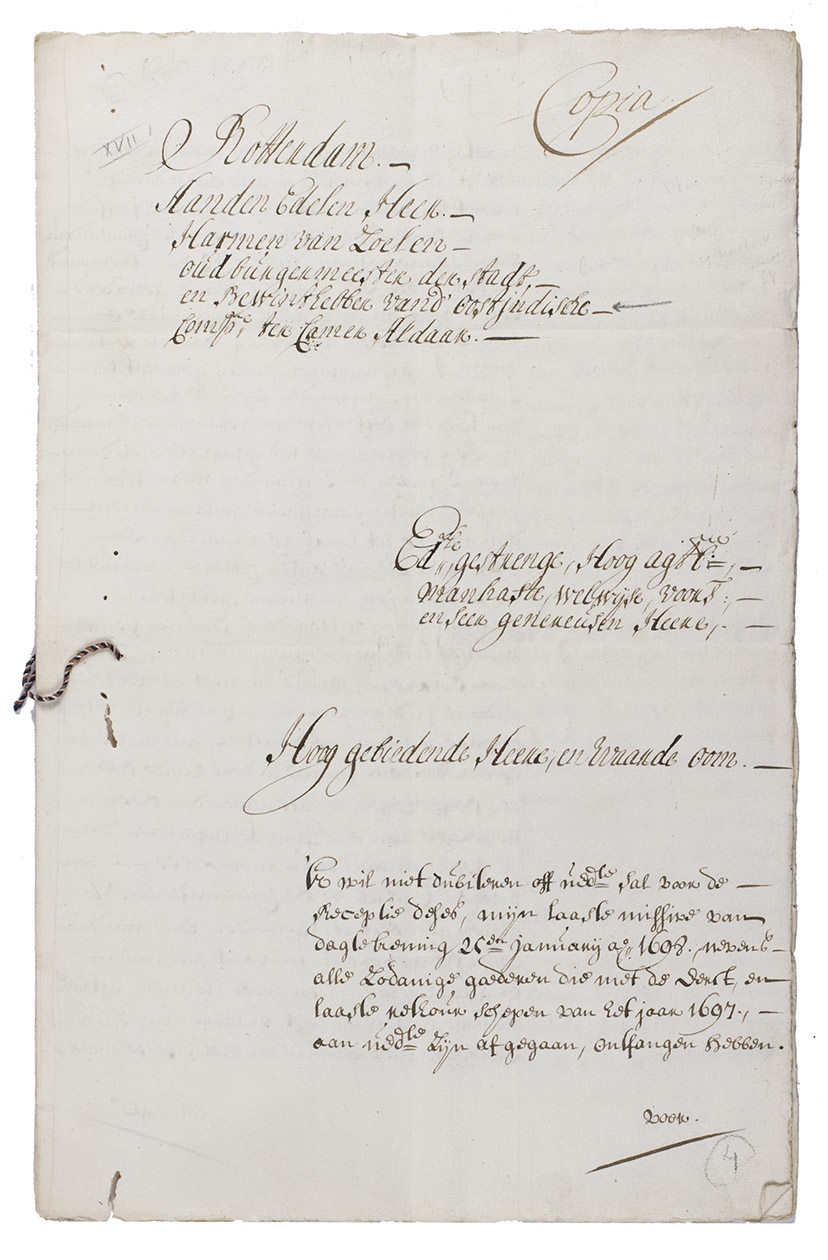 Copia
XVII
Rotterdam.
Aanden Edelen Heer.
Harmen van Zoelen
oud burgermeester der stadt,
en Bewinthebber vand' oostjndische
Comp:e ter Camer Aldaar.
Ed:le gestrenge, Hoog agtb:re,
manhafte, welwijse, voors:,
en seer genereusen Heere,
Hoog gebiedende Heere, en Waarde oom.
Ik wil niet dubiteren off uEd:le sal voor de
Receptie deses, mijn laaste missive van
dagtekening 25:en january a:o 1698., nevens
alle zodanige goederen die met de Eerst, en
laaste retour schepen van het jaar 1697.,
aan uEd:le zijn afgegaan, ontfangen hebben.
voor.
4